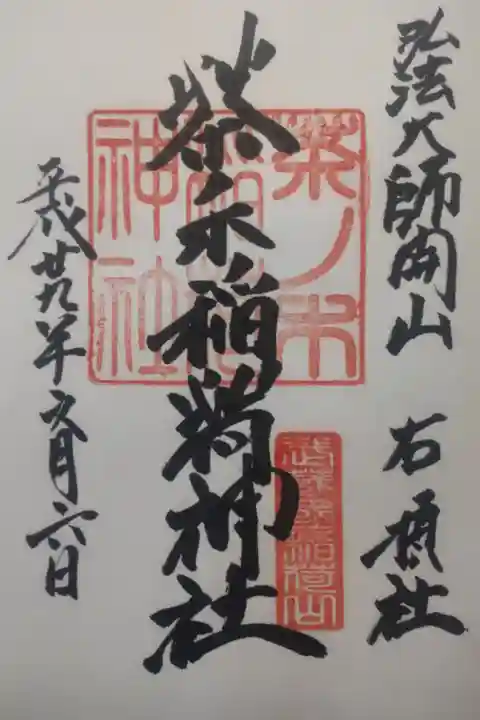 弘法大師開山
茶ノ木稲荷神社
平成廿九年五月六日
茶ノ木
稲荷
神社
武蔵國稲荷山